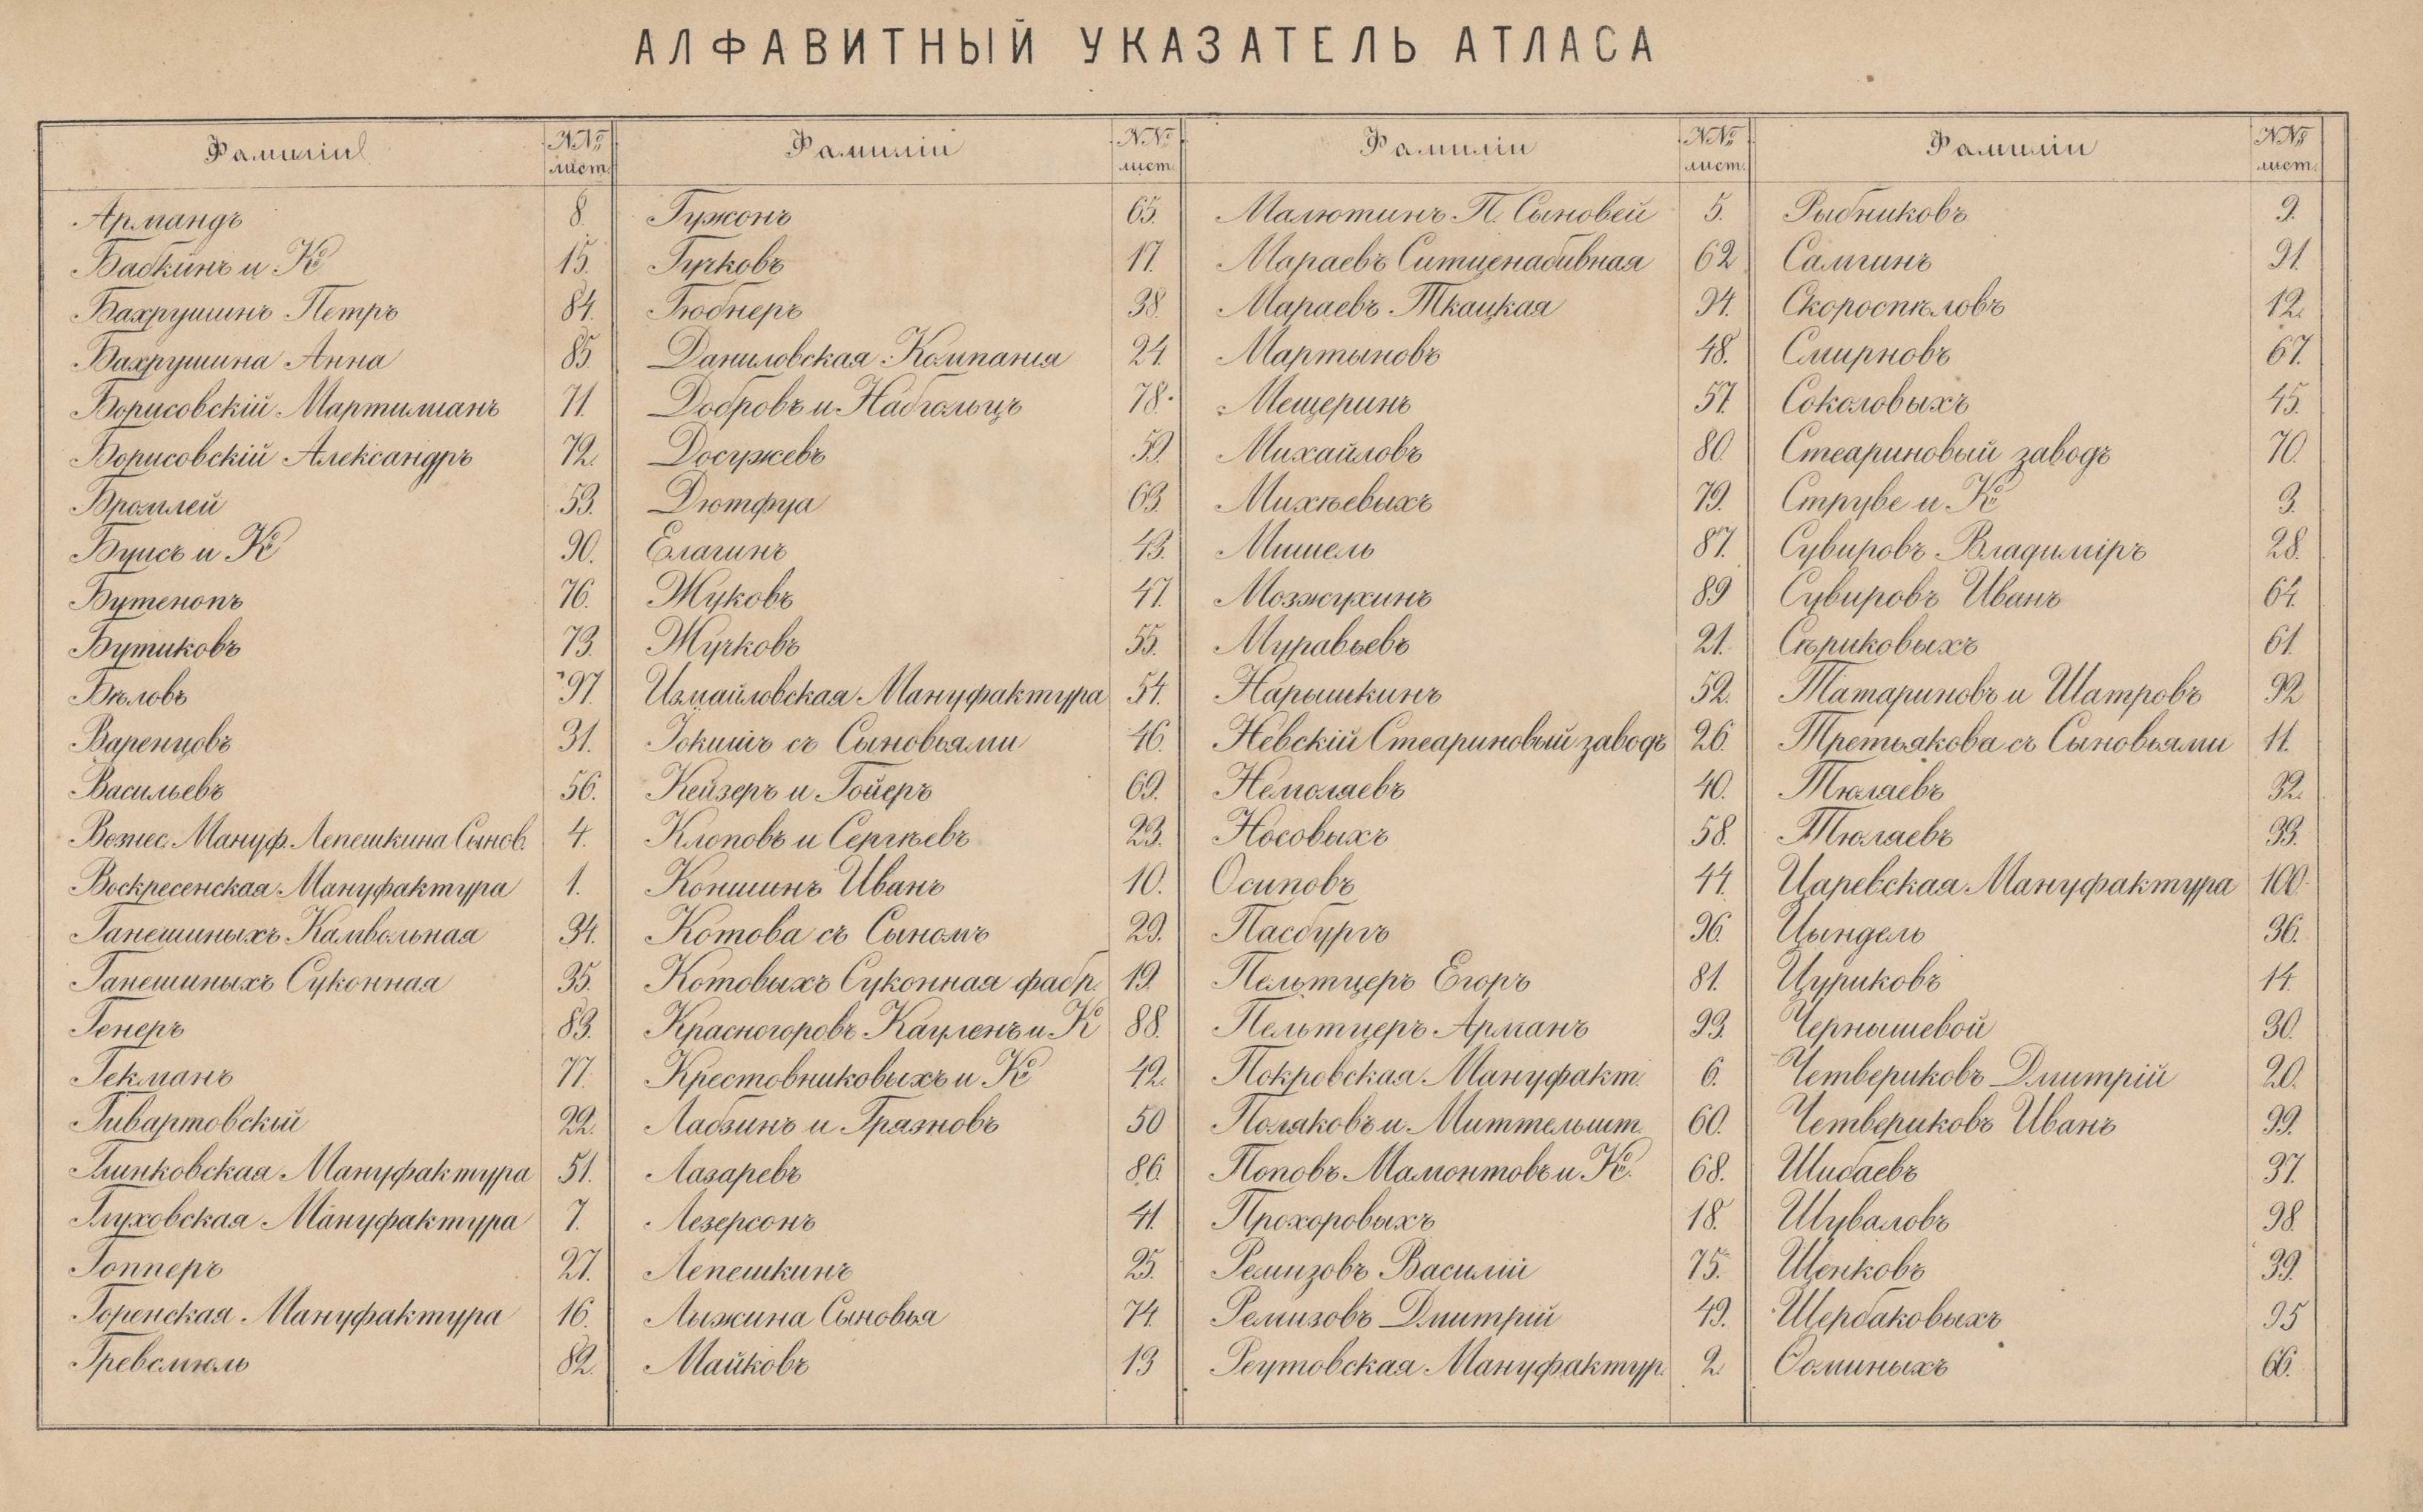 АЛФАВИТНЫЙ УКАЗАТЕЛЬ АТЛАСА
Фамиліи №№ лист.
Армандъ 8.
Бабкинъ и Кº 15.
Бахрушинъ Петръ 84.
Бахрушина Анна 85.
Борисовскій Мартиміанъ 71.
Борисовскій Александръ 72.
Бромлей 53.
Буисъ и Кº 90.
Бутенопъ 76.
Бутиковъ 73.
Бѣловъ 97.
Варенцовъ 31.
Васильевъ 56.
Вознес. Мануф. Лепешкина Сынов. 4.
Воскресенская Мануфактура 1.
Ганешиныхъ Камвольная 34.
Ганешиныхъ Суконная 35.
Генеръ 83.
Гекманъ 77.
Гивартовскій 22.
Глинковская Мануфактура 51.
Глуховская Мануфактура 7.
Гопперъ 27.
Горенская Мануфактура 16.
Гревсмюль 82.
Фамиліи №№ лист.
Гужонъ 65.
Гучковъ 17.
Гюбнеръ 38.
Даниловская Компанія 24.
Добровъ и Набгольцъ 78.
Досужевъ 59.
Дютфуа 63.
Елагинъ 43.
Жуковъ 47.
Жучковъ 55.
Измайловская Мануфактура 54.
Іокишъ съ Сыновьями 46.
Кейзеръ и Гойеръ 69.
Клоповъ и Сергѣевъ 23.
Коншинъ Иванъ 10.
Котова съ Сыномъ 29.
Котовыхъ Суконная фабр. 19.
Красногоровъ Кауленъ и Кº 88.
Крестовниковыхъ и Кº 42.
Лабзинъ и Грязновъ 50
Лазаревъ 86.
Лезерсонъ 41.
Лепешкинъ 25.
Лыжина Сыновья 74.
Майковъ 13
Фамиліи №№ лист.
Малютинъ П. Сыновей 5.
Мараевъ Ситценабивная 62
Мараевъ Ткацкая 94.
Мартыновъ 48.
Мещеринъ 57.
Михайловъ 80.
Михѣевыхъ 79.
Мишель 87.
Мозжухинъ 89
Муравьевъ 21.
Нарышкинъ 52.
Невскій Стеариновый заводъ 26.
Немолаевъ 40.
Носовыхъ 58.
Осиповъ 44.
Пасбургъ 96.
Пельтцеръ Егоръ 81.
Пельтцеръ Арманъ 93.
Покровская Мануфакт. 6.
Поляковъ и Миттельшт. 60.
Поповъ Мамонтовъ и Кº. 68.
Прохоровыхъ 18.
Ремизовъ Василій 75.
Ремизовъ Дмитрій 49.
Реутовская Мануфактур. 2.
Фамиліи №№ лист.
Рыбниковъ 9.
Самгинъ 91.
Скороспѣловъ 12.
Смирновъ 67.
Соколовыхъ 45.
Стеариновый заводъ 70.
Струве и Кº 3.
Сувировъ Владиміръ 28.
Сувировъ Иванъ 64.
Сѣриковыхъ 61.
Татариновъ и Шатровъ 92
Третьякова съ Сыновьями 11.
Тюляевъ 32.
Тюляевъ 33.
Царевская Мануфактура 100.
Цындель 36.
Цуриковъ 14.
Чернышевой 30.
Четвериковъ Дмитрій 20.
Четвериковъ Иванъ 99.
Шибаевъ 37.
Шуваловъ 98.
Щенковъ 39.
Щербаковыхъ 95
Ѳоминыхъ 66.